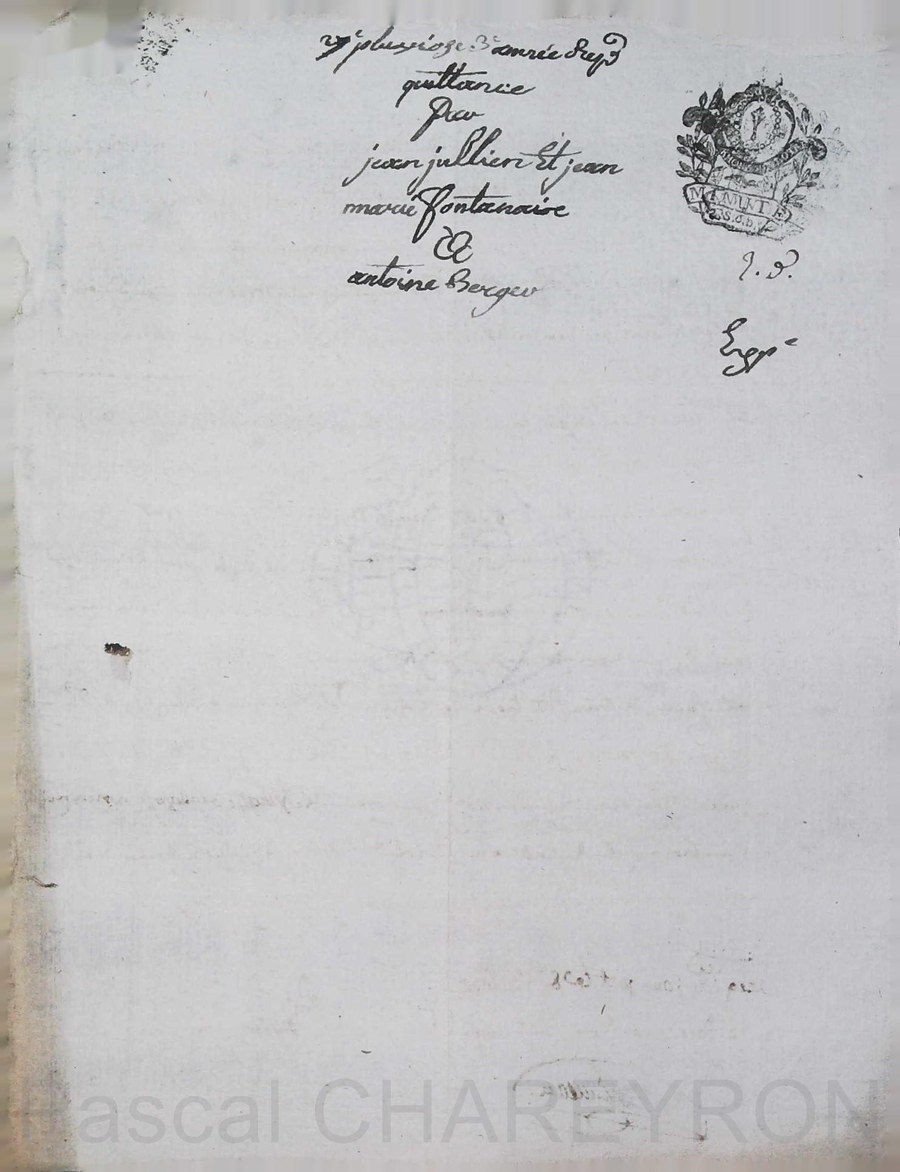 pluviose 3e année Rep
quittance
Par
jean jullien Et jean
marie fontanaise
a
antoine Berger
Exp e
Pascal CHAREYRON